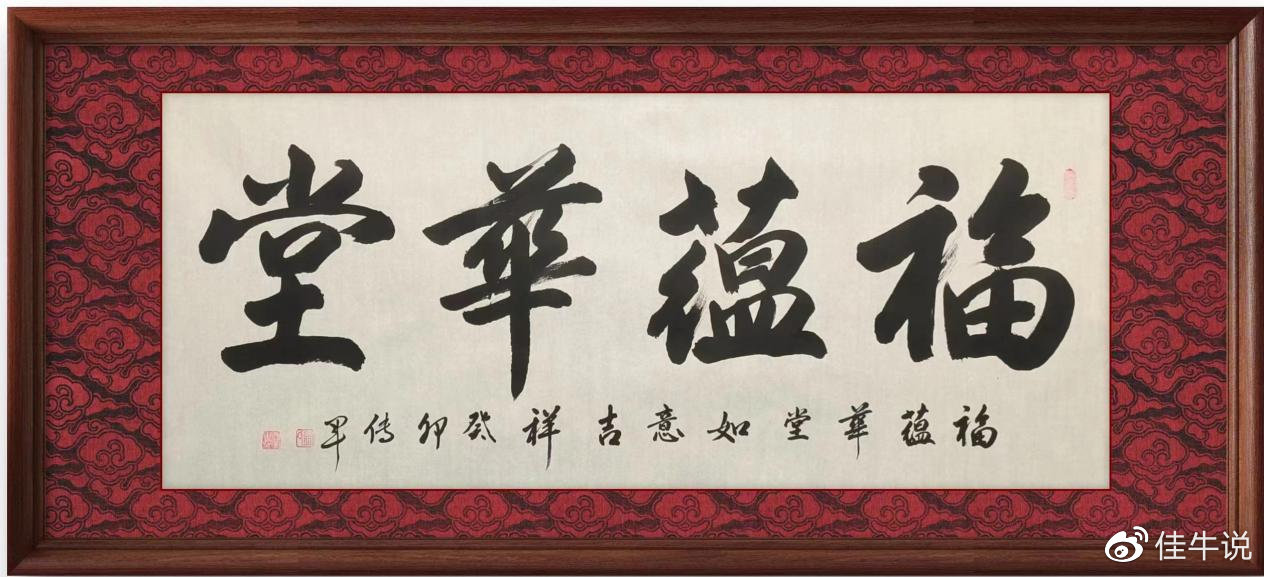 福蕴華堂
福蕴華堂如意吉祥癸卯传軍
佳牛说